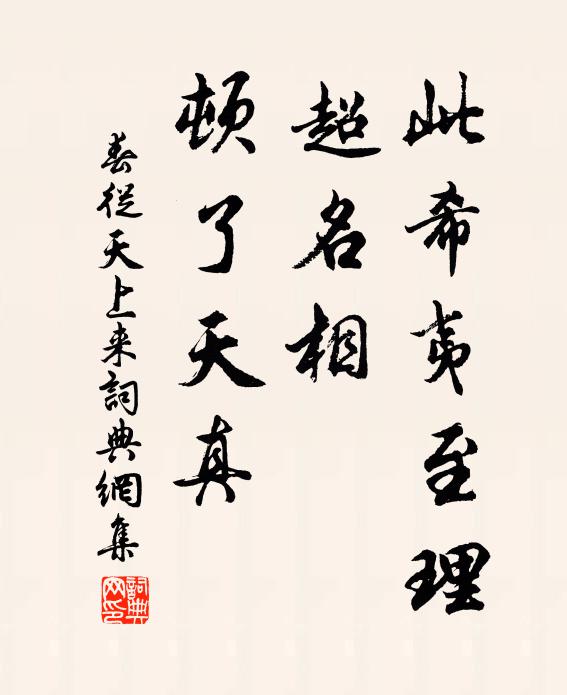 此希夷至理
超名相
頓了天真
春從天上来詞典網集
詞典
网印